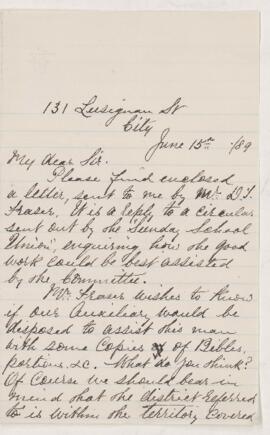 131 Lusignan St
City
June 15th /89
My dear Sir.
Please find enclosed
a letter, sent to me by Mr. D. T.
Fraser. It is a reply to a circular
sent out by the Sunday School
Union, enquiring how the good
work could be best assisted
by the Committee.
Mr. Fraser wishes to know
if our Auxiliary would be
disposed to assist this man
with some Copies of Bibles,
portions, &c. What do you think?
Of Course we should bear in
mind that the district referred
to is within the territory covered